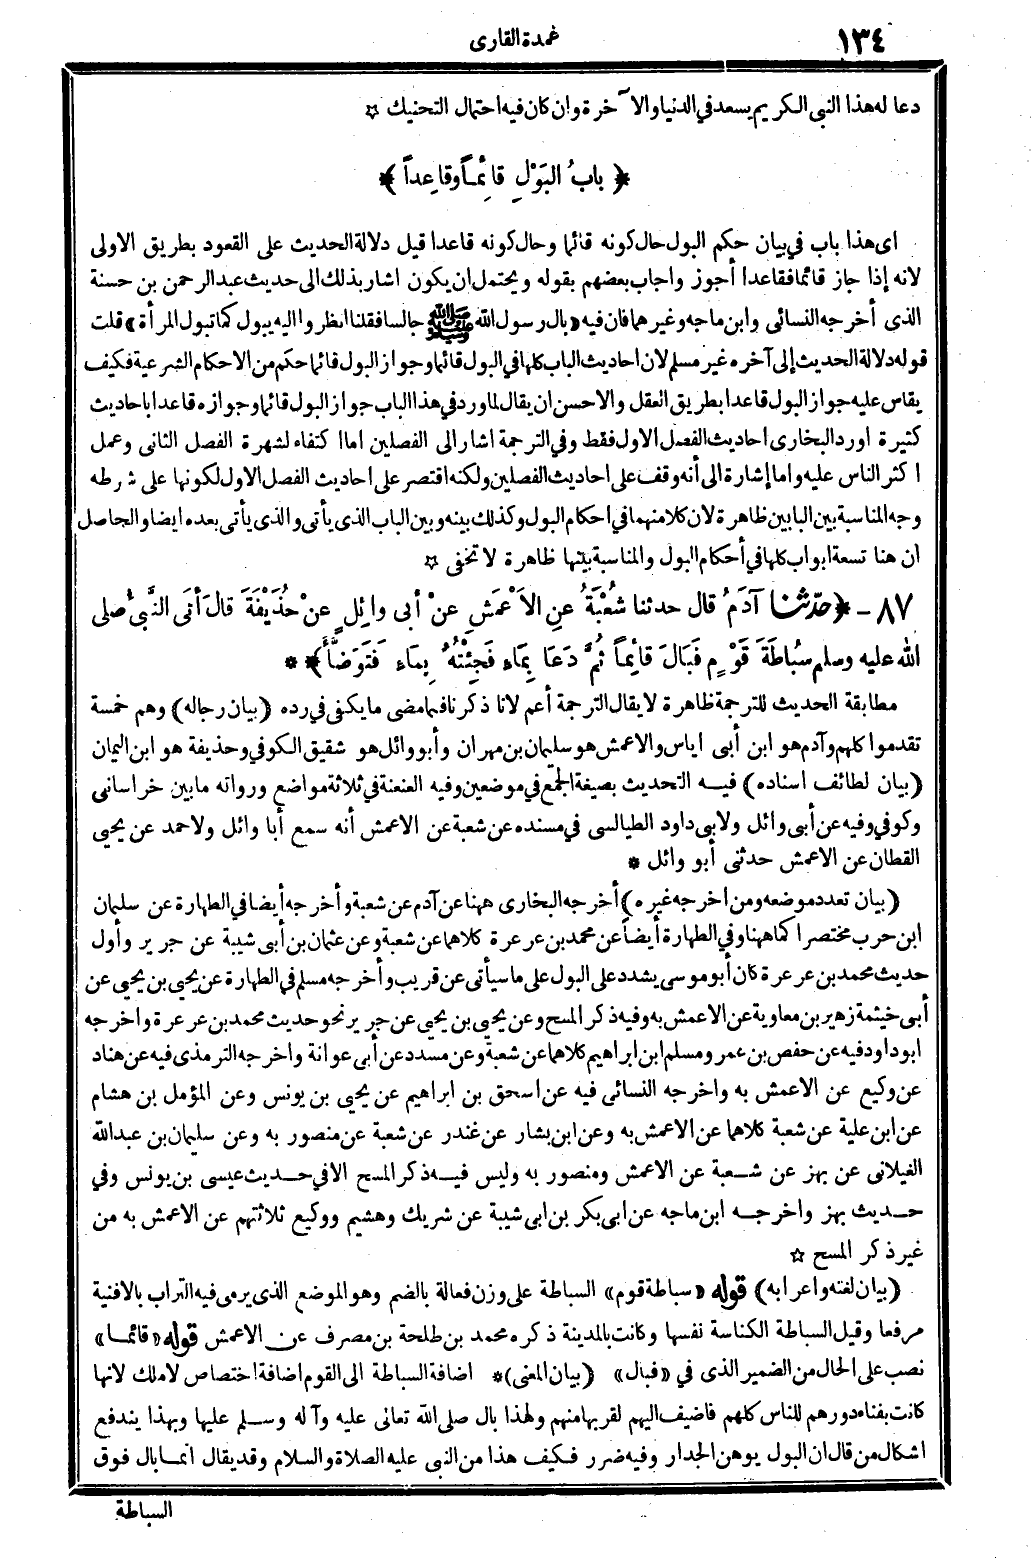 ١٣٤
عمدة القارى
دعا له هذا النبى الكريم يسعد في الدنيا والآخرة وان كان فيه احتمال التحنيك ☆
﴿ بابُ البَوْلِ قائِماً وقاعِداً ﴾
اى هذا باب في بيان حكم البول حال كونه قائما وحال كونه قاعدا قيل دلالة الحديث على القعود بطريق الاولى
لانه إذا جاز قائما فقاعدا أجوز واجاب بعضهم بقوله ويحتمل ان يكون اشار بذلك الى حديث عبد الرحمن بن حسنة
الذى أخرجه النسائى وابن ماجه وغيرهما فان فيه «بال رسول الله ﷺ جالسا فقلنا انظروا اليه يبول كما تبول المرأة» قلت
قوله دلالة الحديث إلى آخره غير مسلم لان احاديث الباب كلها في البول قائما وجواز البول قائما حكم من الاحكام الشرعية فكيف
يقاس عليه جواز البول قاعدا بطريق العقل والاحسن ان يقال لما ورد في هذا الباب جواز البول قائما وجوازه قاعدا باحاديث
كثيرة اورد البخارى احاديث الفصل الاول فقط وفي الترجمة اشار الى الفصلين اما اكتفاء لشهرة الفصل الثانى وعمل
اكثر الناس عليه واما إشارة الى أنه وقف على احاديث الفصلين ولكنه اقتصر على احاديث الفصل الاول لكونها على شرطه
وجه المناسبة بين البابين ظاهرة لان كلا منهما في احكام البول وكذلك بينه وبين الباب الذى يأتى والذى يأتى بعده ايضا والحاصل
ان هنا تسعة ابواب كلها في أحكام البول والمناسبة بينها ظاهرة لا تخفى ☆
٨٧ - ﴿حدّثنا آدَمُ قال حدثنا شُعْبَةُ عنِ الاَعْمَشِ عنْ أبى وائِلٍ عنْ حُذَيْفَةَ قالَ أتَى النَّبىُّ صلى
الله عليه وسلم سُباطَةَ قَوْمٍ فَبَالَ قائِماً ثُمَّ دَعَا بِمَاءٍ فَجِئْتُهُ بِمَاءٍ فَتَوَضَّأَ﴾ *
مطابقة الحديث للترجمة ظاهرة لا يقال الترجمة أعم لانا ذكرنا فيما مضى ما يكفى في رده (بيان رجاله) وهم خمسة
تقدموا كلهم وآدم هو ابن أبى اياس والاعمش هو سليمان بن مهران وأبو وائل هو شقيق الكوفي وحذيفة هو ابن اليمان
(بيان لطائف اسناده) فيه التحديث بصيغة الجمع في موضعين وفيه العنعنة في ثلاثة مواضع ورواته ما بين خراسانى
وكوفي وفيه عن أبى وائل ولابى داود الطيالسى في مسنده عن شعبة عن الاعمش أنه سمع أبا وائل ولاحمد عن يحيى
القطان عن الاعمش حدثنى أبو وائل *
(بيان تعدد موضعه ومن اخرجه غيره) أخرجه البخارى ههنا عن آدم عن شعبة وأخرجه أيضا في الطهارة عن سليمان
ابن حرب مختصرا كما ههنا وفي الطهارة أيضاً عن محمد بن عرعرة كلاهما عن شعبة وعن عثمان بن أبى شيبة عن جرير وأول
حديث محمد بن عرعرة كان أبو موسى يشدد على البول على ما سيأتى عن قريب وأخرجه مسلم في الطهارة عن يحيى بن يحيى عن
أبى خيثمة زهير بن معاوية عن الاعمش به وفيه ذكر المسح وعن يحيى بن يحيى عن جرير نحو حديث محمد بن عرعرة واخرجه
ابو داود فيه عن حفص بن عمر ومسلم ابن ابراهيم كلاهما عن شعبة وعن مسدد عن أبى عوانة واخرجه الترمذى فيه عن هناد
عن وكيع عن الاعمش به واخرجه النسائى فيه عن اسحق بن ابراهيم عن يحيى بن يونس وعن المؤمل بن هشام
عن ابن علية عن شعبة كلاهما عن الاعمش به وعن ابن بشار عن غندر عن شعبة عن منصور به وعن سليمان بن عبد الله
الغيلانى عن بهز عن شعبة عن الاعمش ومنصور به وليس فيه ذكر المسح الا في حديث عيسى بن يونس وفي
حديث بهز واخرجه ابن ماجه عن ابى بكر بن ابى شيبة عن شريك وهشيم ووكيع ثلاثتهم عن الاعمش به من
غير ذكر المسح ☆
(بيان لغته واعرابه) قوله «سباطة قوم» السباطة على وزن فعالة بالضم وهو الموضع الذى يرمى فيه التراب بالافنية
مرفعا وقيل السباطة الكناسة نفسها وكانت بالمدينة ذكره محمد بن طلحة بن مصرف عن الاعمش قوله «قائما»
نصب على الحال من الضمير الذى في «فبال» (بيان المعنى)* اضافة السباطة الى القوم اضافة اختصاص لا ملك لانها
كانت بفناء دورهم للناس كلهم فاضيف اليهم لقربها منهم ولهذا بال صلى الله تعالى عليه وآله وسلم عليها وبهذا يندفع
اشكال من قال ان البول يوهن الجدار وفيه ضرر فكيف هذا من النبى عليه الصلاة والسلام وقد يقال انما بال فوق
السباطة